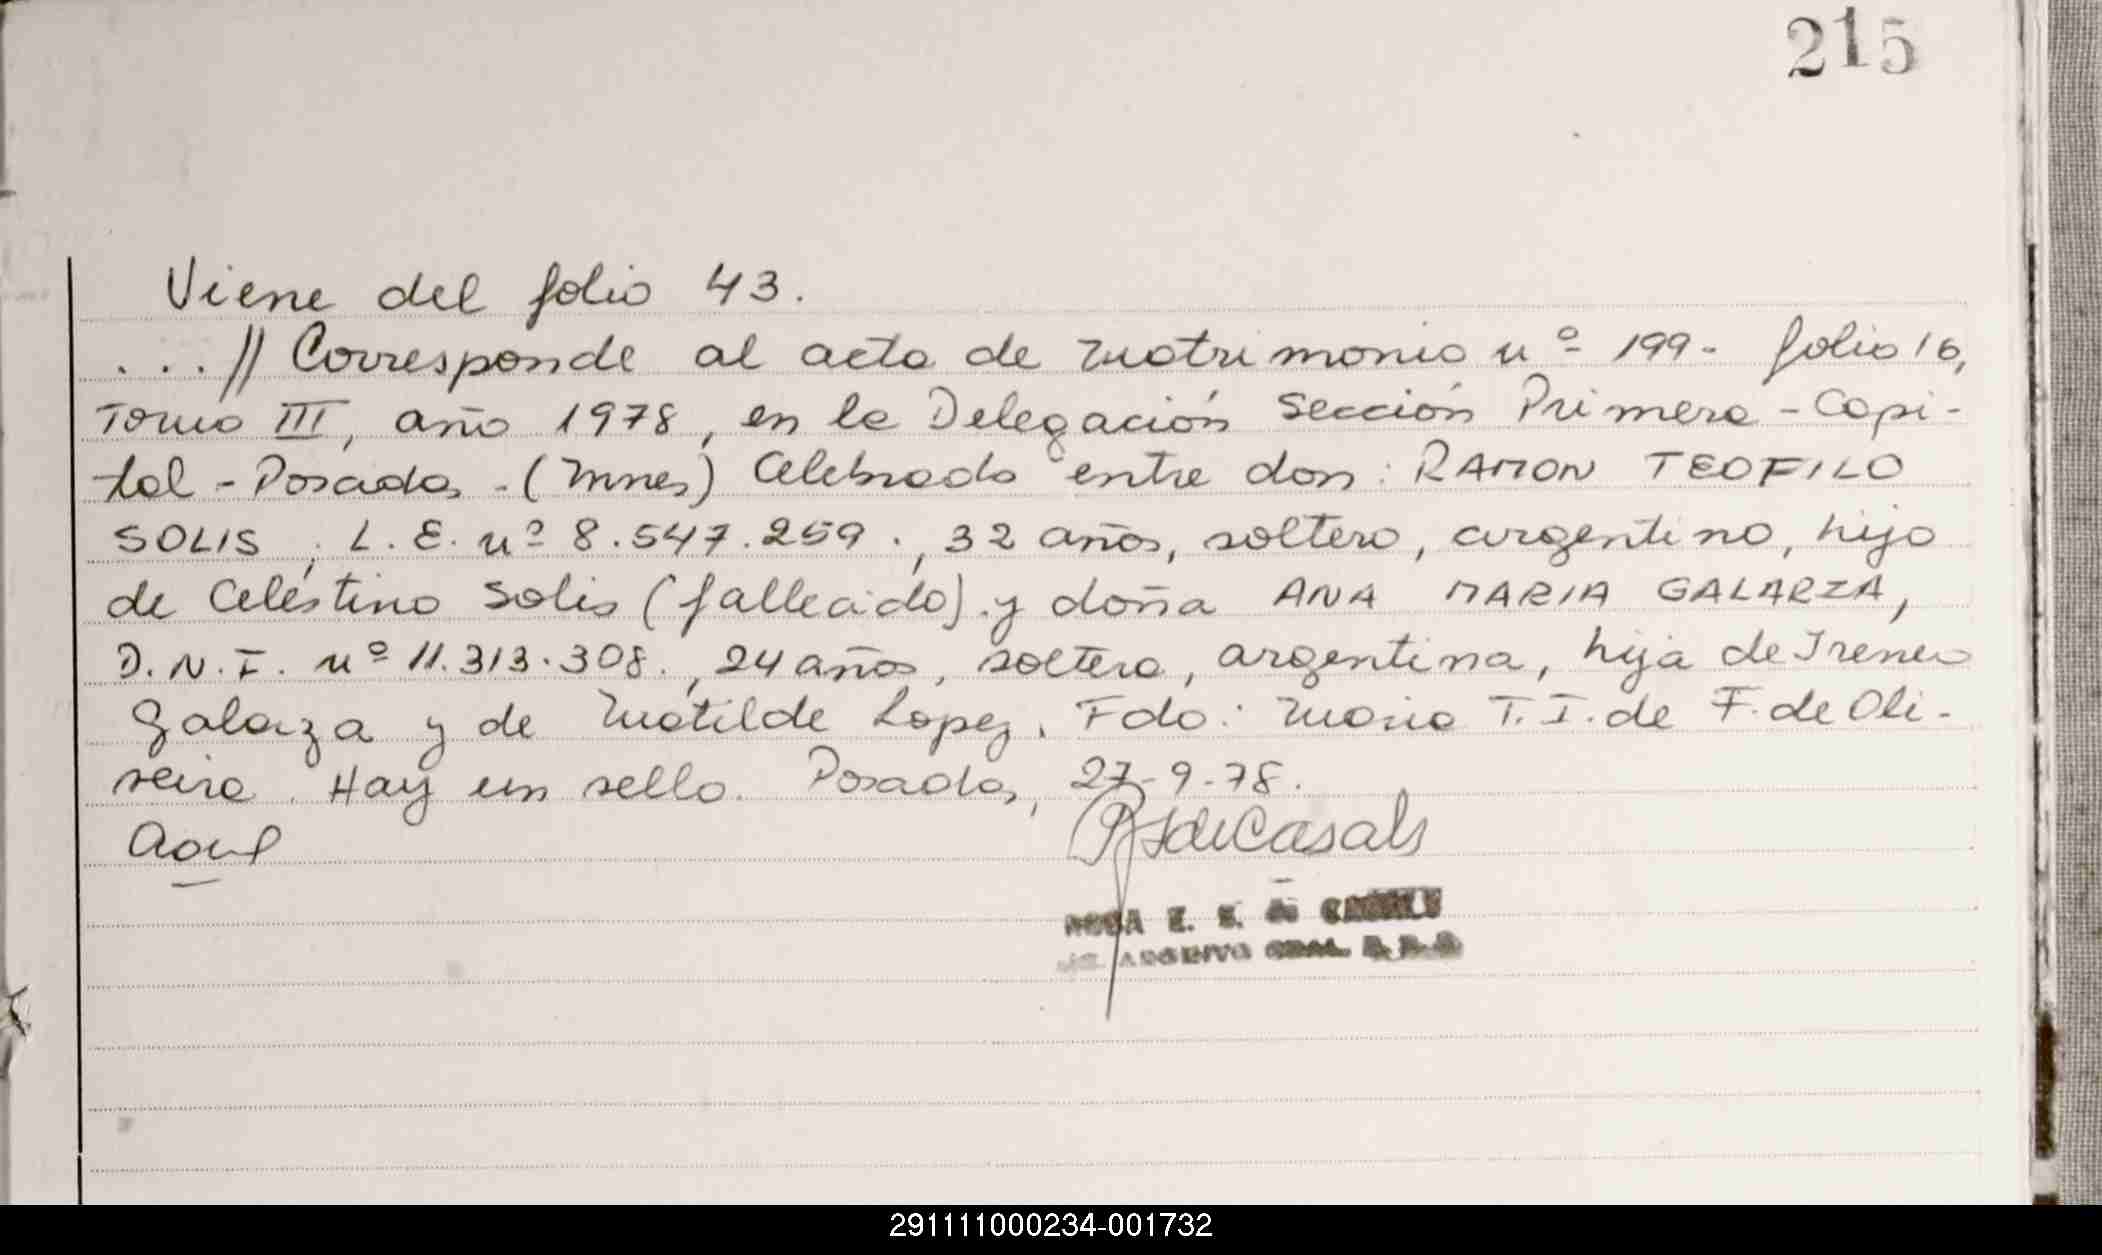 215
Viene del folio 43.
...// Corresponde al acta de Matrimonio nº 199- folio 16,
Tomo III, año 1978, en la Delegación Sección Primera - Capi-
tal - Posadas - (Mnes) Celebrado entre don: RAMON TEOFILO
SOLIS, L.E. nº 8.547.259., 32 años, soltero, argentino, hijo
de Celestino Solis (fallecido). y doña ANA MARIA GALARZA,
D.N.I. nº 11.313.308., 24 años, soltera, argentina, hija de Ireneo
Galarza y de Matilde Lopez. Fdo: Maria T.I. de F. de Oli-
veira. Hay un sello. Posadas, 27-9-78.
de Casals
ARCHIVO GRAL.
291111000234-001732